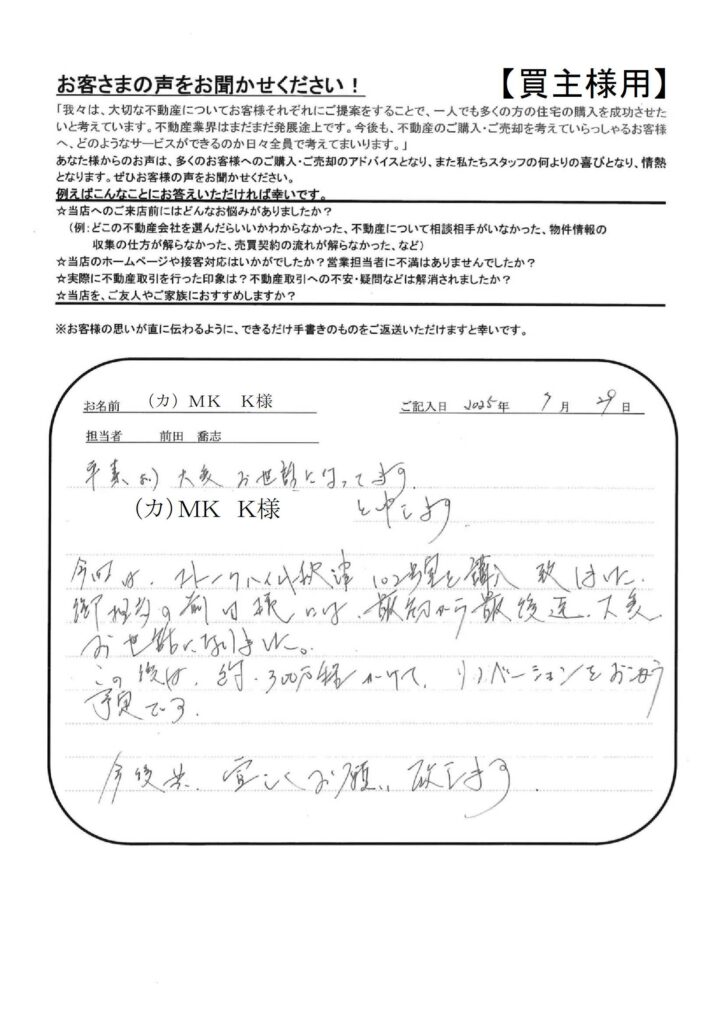 お客さまの声をお聞かせください！
【買主様用】
「我々は、大切な不動産についてお客様それぞれにご提案をすることで、一人でも多くの方の住宅の購入を成功させた
いと考えています。不動産業界はまだまだ発展途上です。今後も、不動産のご購入・ご売却を考えていらっしゃるお客様
へ、どのようなサービスができるのか日々全員で考えてまいります。」
あなた様からのお声は、多くのお客様へのご購入・ご売却のアドバイスとなり、また私たちスタッフの何よりの喜びとなり、情熱
となります。ぜひお客様の声をお聞かせください。
例えばこんなことにお答えいただければ幸いです。
☆当店へのご来店前にはどんなお悩みがありましたか？
（例：どこの不動産会社を選んだらいいかわからなかった、不動産について相談相手がいなかった、物件情報の
収集の仕方が解らなかった、売買契約の流れが解らなかった、など）
☆当店のホームページや接客対応はいかがでしたか？営業担当者に不満はありませんでしたか？
☆実際に不動産取引を行った印象は？不動産取引への不安・疑問などは解消されましたか？
☆当店を、ご友人やご家族におすすめしますか？
※お客様の思いが直に伝わるように、できるだけ手書きのものをご返送いただけますと幸いです。
お名前 （カ）ＭＫ　Ｋ様 ご記入日 2025年 月 29日
担当者 前田 喬志
平素より 大変 お世話になってます。
（カ）ＭＫ　Ｋ様 と申します。
今回は、 102号室を購入致しました。
御担当の前田様には、最初から最後迄、大変
お世話になりました。
この後は、約300万程かけて、リノベーションをおこなう
予定です。
今後共、宜しくお願い致します。